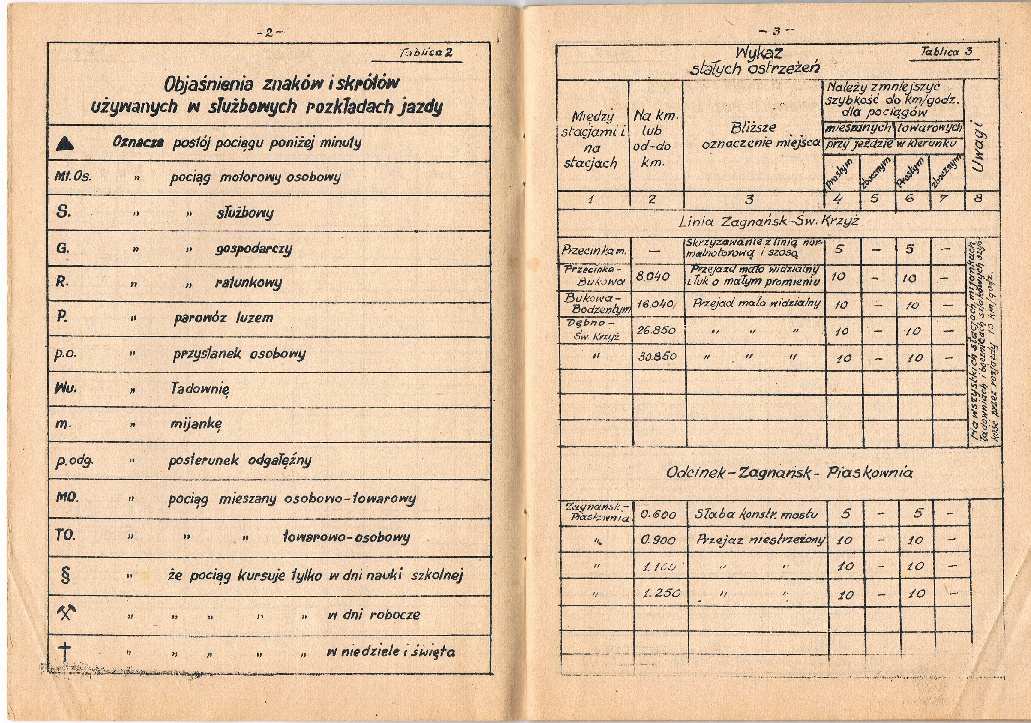 -2-
Tablica 2
Objaśnienia znaków i skrótów
używanych w służbowych rozkładach jazdy
▲ Oznacza postój pociągu poniżej minuty
Mt.Os. " pociąg motorowy osobowy
S. " " służbowy
G. " " gospodarczy
R. " " ratunkowy
P. " parowóz luzem
p.o. " przystanek osobowy
Wu. " Ładownię
m. " mijankę
p.odg. " posterunek odgałęźny
MO. " pociąg mieszany osobowo-towarowy
TO. " " " towarowo-osobowy
§ " że pociąg kursuje tylko w dni nauki szkolnej
⚒ " " " " " w dni robocze
† " " " " " w niedziele i święta
-3-
Wykaz
stałych ostrzeżeń
Tablica 3
Między
stacjami i
na
stacjach
Na km.
lub
od-do
km.
Bliższe
oznaczenie miejsca
Należy zmniejszyć
szybkość do km/godz.
dla pociągów
mieszanych towarowych
przy jeździe w kierunku
Prostym zbocznym Prostym zbocznym
Uwagi
1 2 3 4 5 6 7 8
Linia Zagnańsk-Św. Krzyż
Przecinka m. — Skrzyżowanie z linią nor-
malnotorową i szosą 5 - 5 -
Przecinka-
Bukowa 8.040 Przejazd mało widzialny
i łuk o małym promieniu 10 - 10 -
Bukowa-
Bodzentyn 16.040 Przejad mało widzialny 10 - 10 -
Dębno-
Św. Krzyż 26.850 " " " 10 - 10 -
" 30.850 " " " 10 - 10 -
Na wszystkich stacjach mijankach
ładowniach i bocznicach szlakowych szyb-
kość przez rozjazdy 10 km/godz.
Odcinek-Zagnańsk-Piaskownia
Zagnańsk-
Piaskownia 0.600 Słaba konstr. mostu 5 - 5 -
" 0.900 Przejaz niestrzeżony 10 - 10 -
" 1.100 " " 10 - 10 -
" 1.250 " " 10 - 10 -